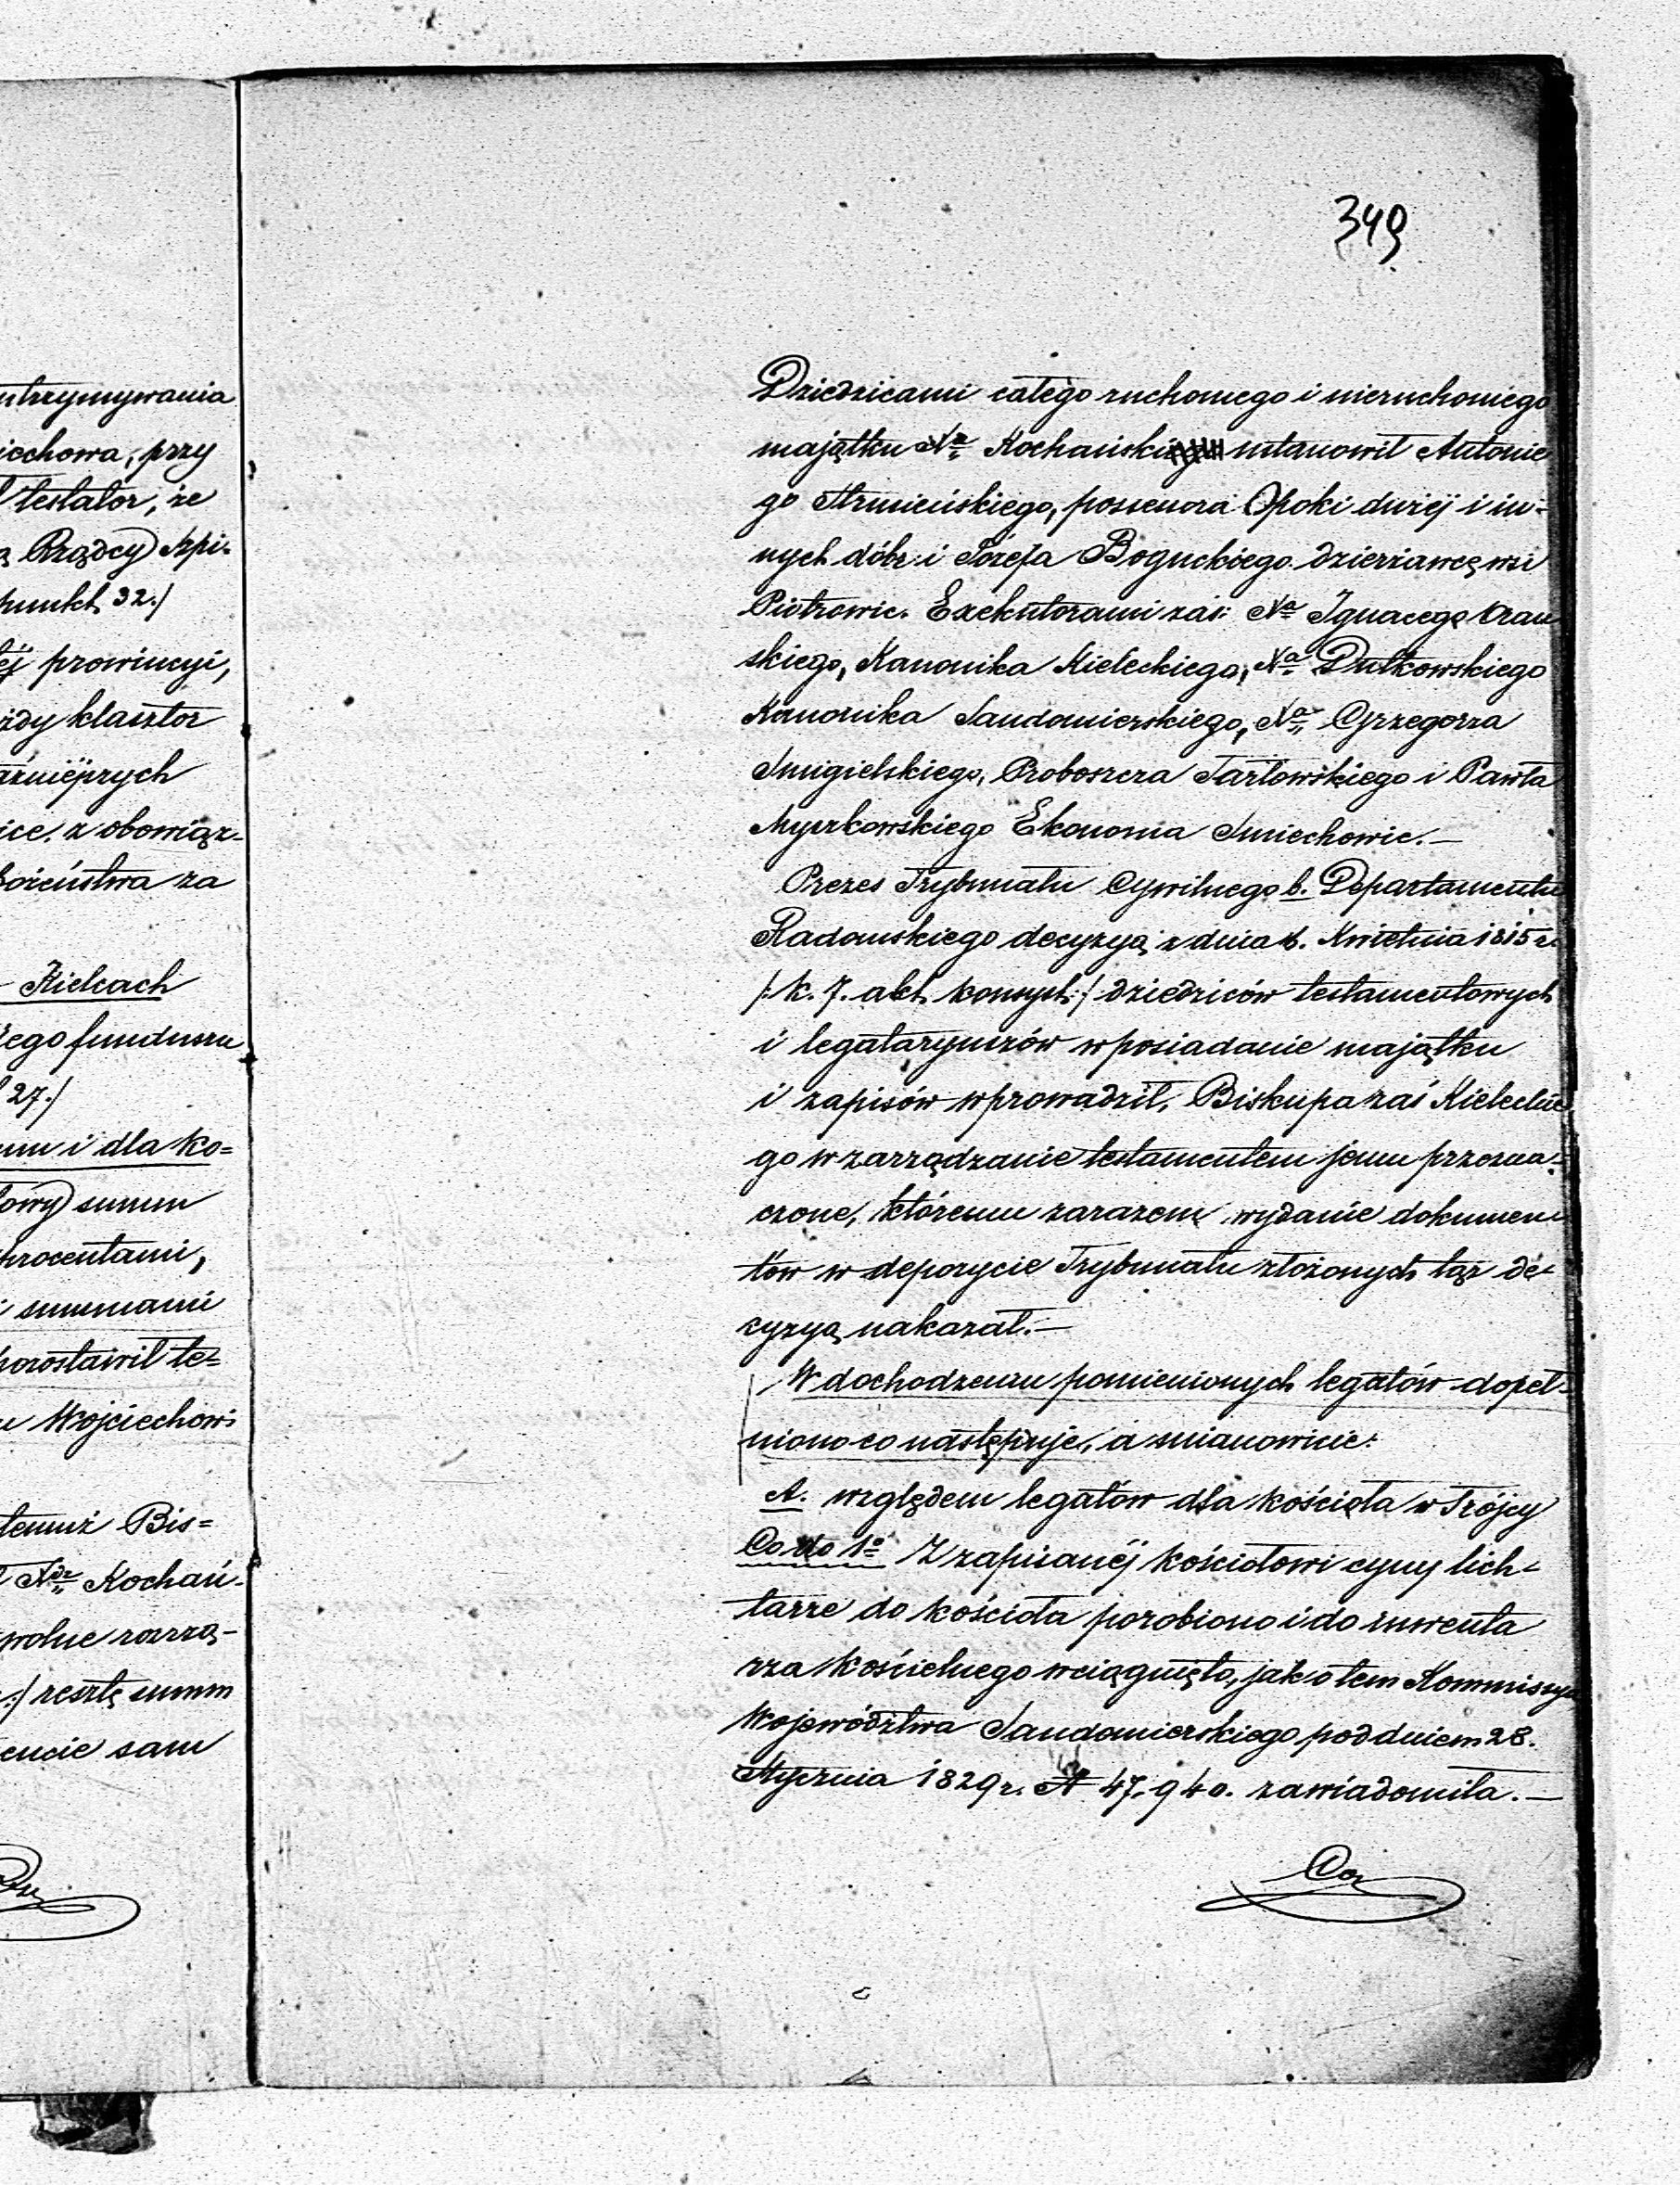 utrzymywania
iechowa, przy
testator, że
Rządcy Szpi-
punkt 32./
ej prowincyi,
żdy klasztor
ażniejszych
ice, z obowiąz-
bożeństwa za
Kielcach
iego funduszu
27./
um i dla ko=
łowy summ
procentami,
i summami
pozostawił te=
u Wojciechowi
temuż Bis=
X. Kochań-
wolne rozrzą-
:/ resztę summ
encie sam
349
Dziedzicami całego ruchomego i nieruchomego
majątku Xa Kochański ustanowił Antonie
go Strzmieńskiego, possesora Opoki dużej i in-
nych dóbr i Józefa Boguckiego dzierżawcę wsi
Piotrowic. Exekutorami zaś: Xa Ignacego
skiego, Kanonika Kieleckiego, Xa Dutkowskiego
Kanonika Sandomierskiego, Xa Grzegorza
Śmigielskiego, Proboszcza Tarłowskiego i Pawła
Myszkowskiego Ekonoma Śmiechowic.—
Prezes Trybunału Cywilnego b. Departamentu
Radomskiego decyzyą z dnia 6. Kwietnia 1815 r.
/:k. 7. akt konsyst:/ dziedziców testamentowych
i legataryuszów w posiadanie majątku
i zapisów wprowadził, Biskupa zaś Kieleckie
go w zarządzanie testamentem jemu przezna-
czone, któremu zarazem wydanie dokumen-
tów w depozycie Trybunału złożonych tąż de-
cyzyą nakazał.—
W dochodzeniu pomienionych legatów dopeł-
niono co następuje, a mianowicie:
A. względem legatów dla kościoła w Trójcy
Co do 1o Z zapisanéj kościołowi cyny lich-
tarze do kościoła porobiono i do inwenta
rza kościelnego wciągnięto, jak o tem Kommissya
Województwa Sandomierskiego pod dniem 28.
Stycznia 1829 r. N 47,940. zawiadomiła.—
Co